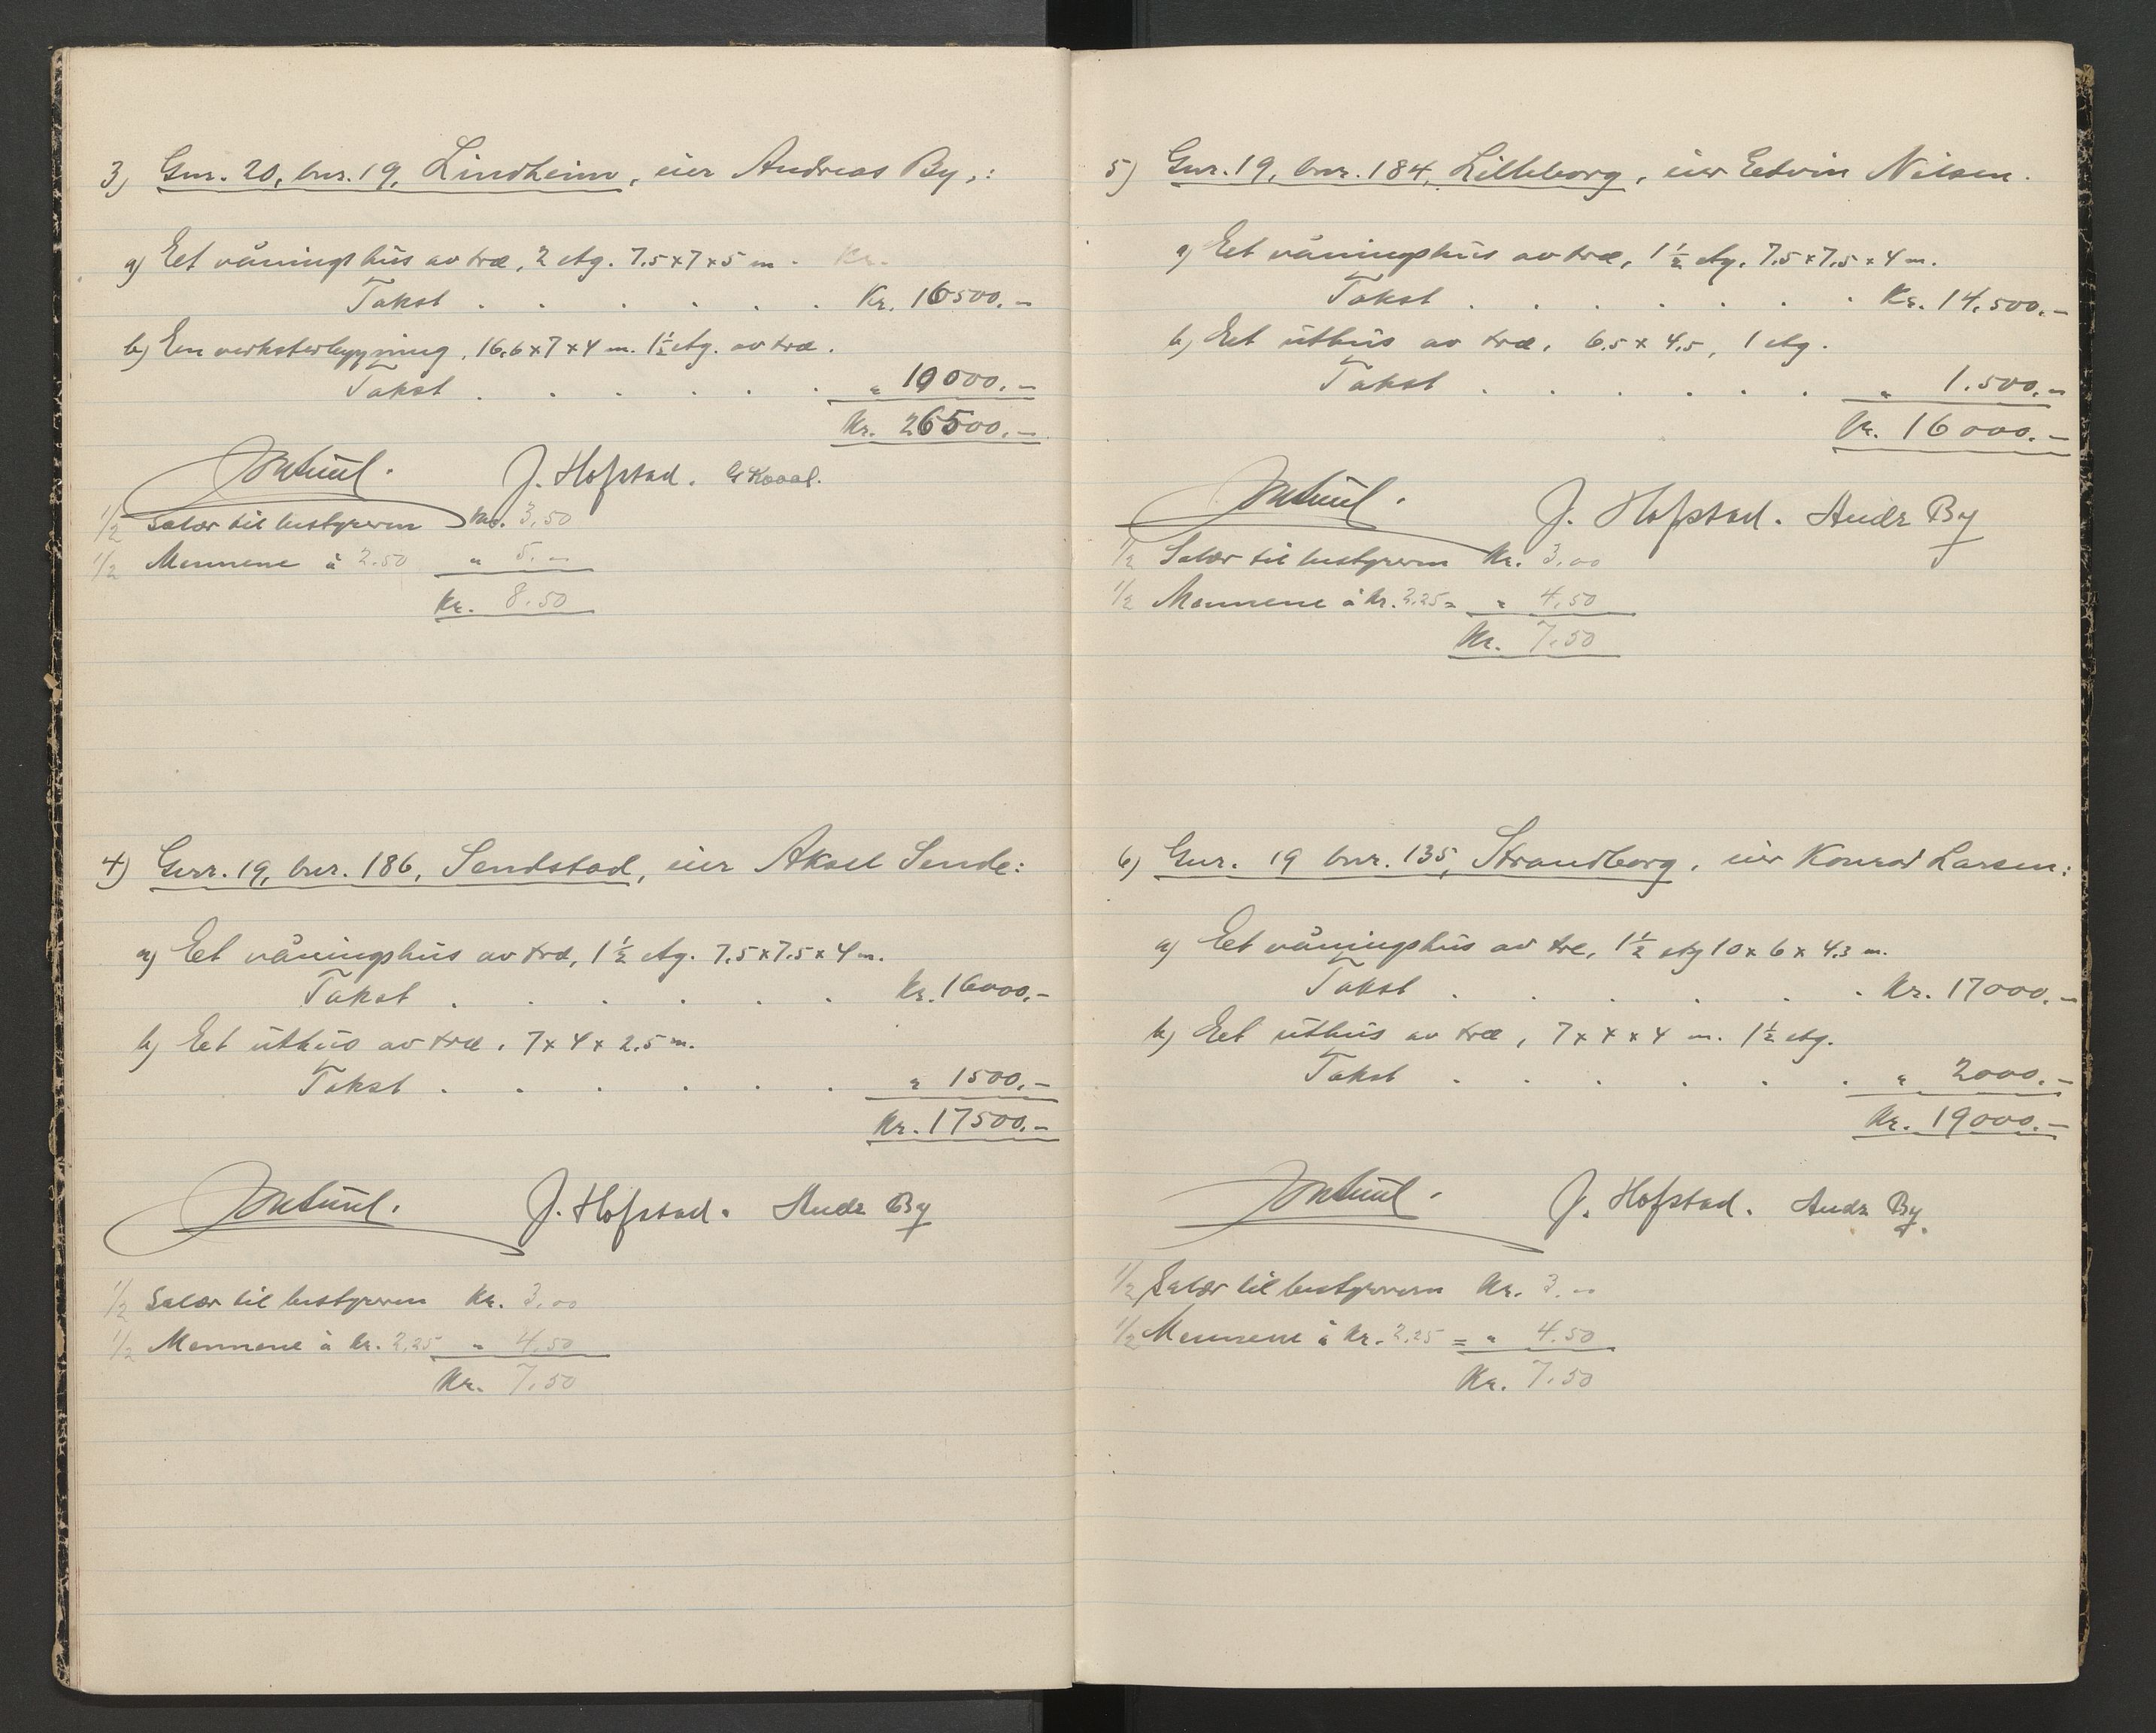 3) Gnr. 20, bnr. 19, Lindheim, eier Andreas By,:
a) Eet våningshus av træ, 2 etg. 7.5 x 7 x 5 m. Kr.
Takst . . . . . . Kr. 16500.-
b) Een verkstedbygning, 16,6 x 7 x 4 m. 1½ etg. av træ.
Takst . . . . . . " 10000.-
Kr. 26500.-
J. Hofstad.
1/2 Salær til bestyreren Kr. 3,50
1/2 Mennene à 2.50 " 5.-
Kr. 8.50
4) Gnr. 19, bnr. 186, Sendstad, eier Aksel Sende:
a) Eet våningshus av træ, 1½ etg. 7.5 x 7.5 x 4 m.
Takst . . . . . . Kr. 16000.-
b) Eet uthus av træ. 7 x 4 x 2.5 m.
Takst . . . . . . " 1500.-
Kr. 17500.-
J. Hofstad. Andr By
1/2 Salær til bestyreren Kr. 3,00
1/2 Mennene à kr. 2,25 " 4.50
Kr. 7.50
5) Gnr. 19, bnr. 184, Lilleborg, eier Edvin Nilsen.
a) Eet våningshus av træ, 1½ etg. 7.5 x 7.5 x 4 m.
Takst . . . . . . Kr. 14.500.-
b) Eet uthus av træ, 6.5 x 4.5, 1 etg.
Takst . . . . . . " 1.500.-
Kr. 16000.-
J. Hofstad. Andr By
1/2 Salær til bestyreren Kr. 3,00
1/2 Mennene à kr. 2,25 = " 4,50
Kr. 7.50
6) Gnr. 19 bnr. 135, Strandborg, eier Konrad Larsen:
a) Eet våningshus av tre, 1½ etg 10 x 6 x 4.3 m.
Takst . . . . . . Kr. 17000.-
b) Eet uthus av træ, 7 x 4 x 4 m. 1½ etg.
Takst . . . . . . " 2000.-
Kr. 19000.-
J. Hofstad. Andr By.
1/2 Salær til bestyreren Kr. 3.-
1/2 Mennene à kr. 2,25 = " 4.50
Kr. 7.50